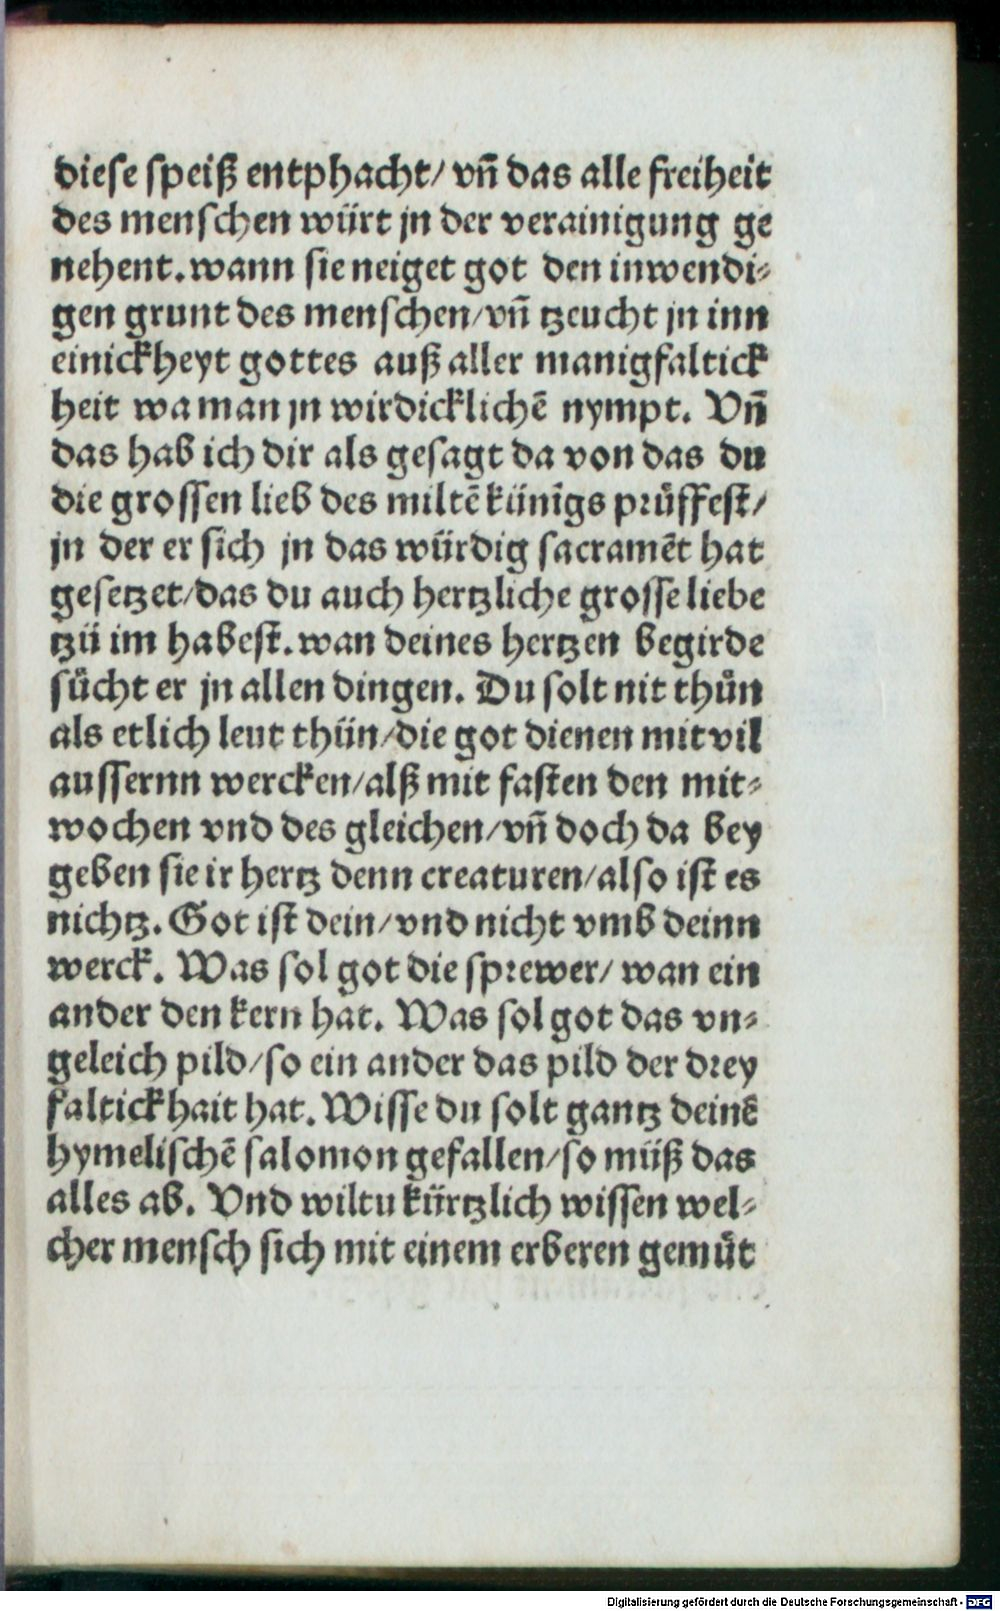 diese speiß entphacht/ vn̄ das alle freiheit
des menschen würt jn der verainigung ge
nehent. wann sie neiget got den inwendi⸗
gen grunt des menschen/ vn̄ tzeucht jn inn
einickheyt gottes auß aller manigfaltick
heit wa man jn wirdicklichē nympt. Vn̄
das hab ich dir als gesagt da von das du
die grossen lieb des miltē künīgs prüffest/
jn der er sich jn das würdig sacramēt hat
gesetzet/ das du auch hertzliche grosse liebe
tzü im habest. wan deines hertzen begirde
sücht er jn allen dingen. Du solt nit thün
als etlich leut thün/ die got dienen mit vil
aussernn wercken/ alß mit fasten den mit⸗
wochen vnd des gleichen/ vn̄ doch da bey
geben sie ir hertz denn creaturen/ also ist es
nichtz. Got ist dein/ vnd nicht vmb deinn
werck. Was sol got die sprewer/ wan ein
ander den kern hat. Was sol got das vn⸗
geleich pild/ so ein ander das pild der drey
faltickhait hat. Wisse du solt gantz deinē
hymelischē salomon gefallen/ so müß das
alles ab. Vnd wiltu kürtzlich wissen wel⸗
cher mensch sich mit einem erberen gemüt
Digitalisierung gefördert durch die Deutsche Forschungsgemeinschaft - DFG